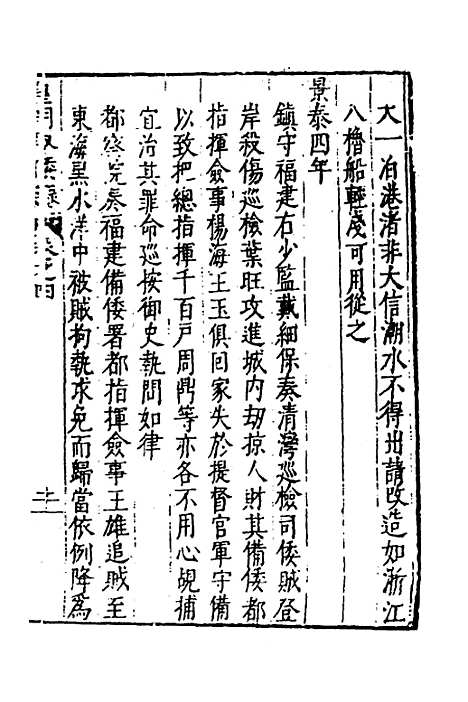 大一泊港渚非大信潮水不得出請改造如浙江
八櫓船輕淺可用從之
景泰四年
鎮守福建右少監戴細保奏清灣巡檢司倭賊登
岸殺傷巡檢葉旺攻進城内劫掠人財其備倭都
指揮僉事楊海王玉俱回家失於提督官軍守備
以致把總指揮千百戶周鼎等亦各不用心覘捕
宜治其罪命巡按御史執問如律
都察院奏福建備倭署都指揮僉事王雄追賊至
東海黑水洋中被賊拘執求免而歸當依例降為
皇明馭倭錄 卷之四
十二